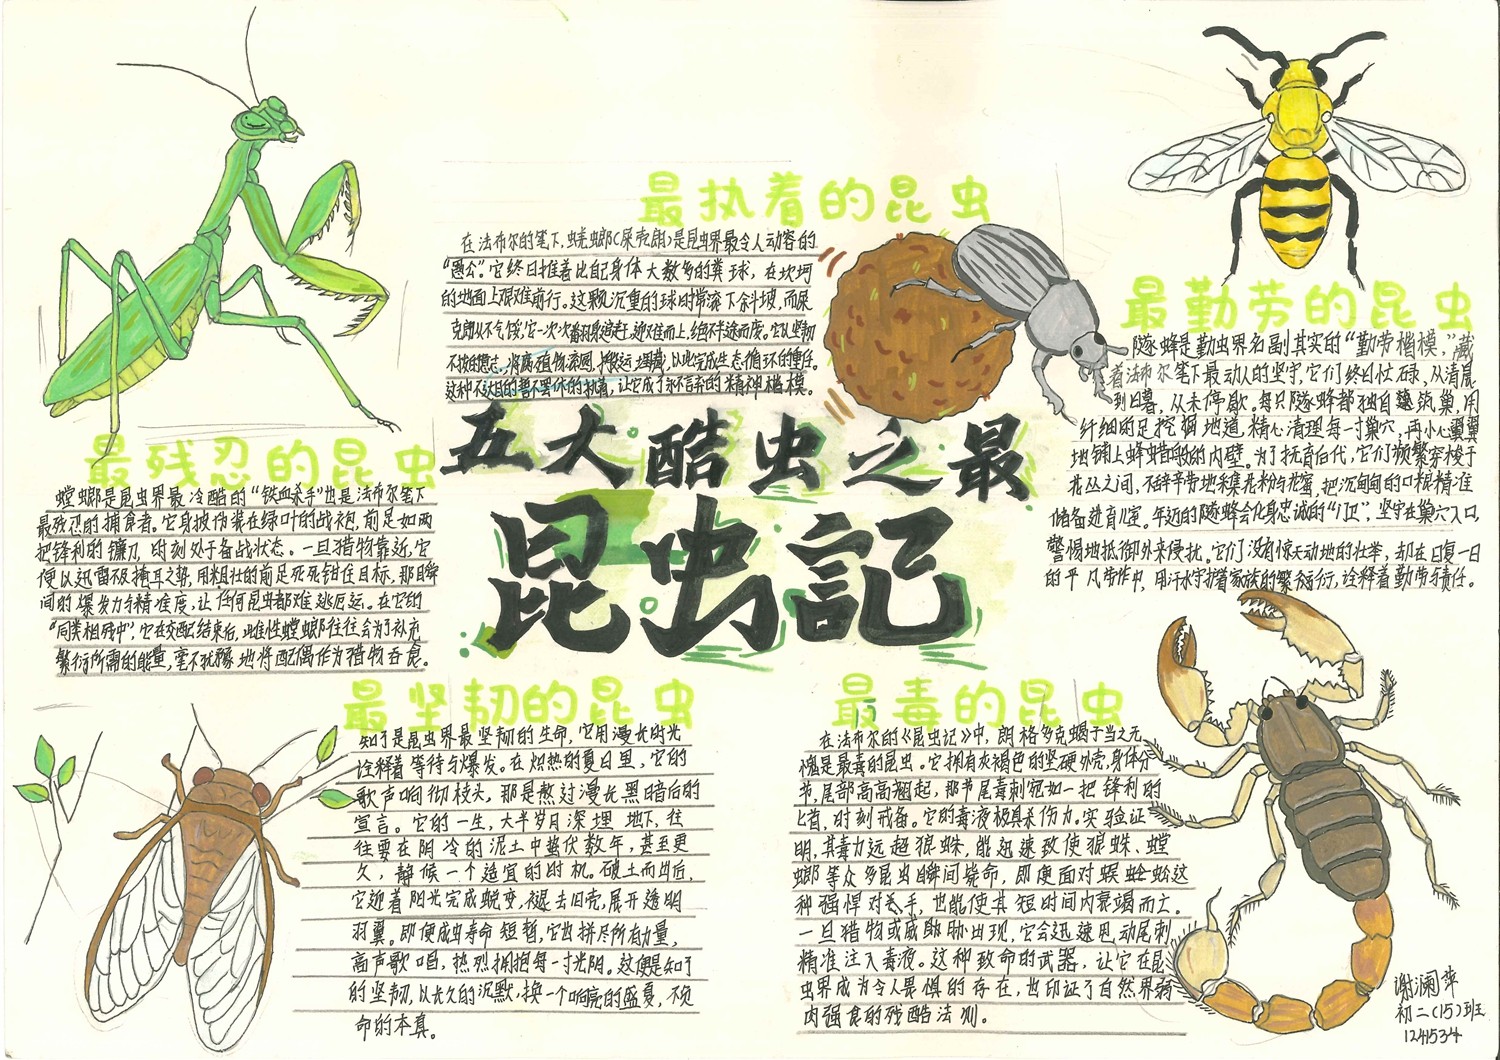 最执着的昆虫
在法布尔的笔下,蜣螂(屎壳郎)是昆虫界最令人动容的
“愚公”。它终日推着比自己身体大数多的粪球,在坎坷
的地面上艰难前行。这颗沉重的球时常滚下斜坡,而屎
克郎从不气馁,它一次次着羽身追赶,迎难而上,绝不半途而废。它以坚韧
不拔的意志,将腐植物滚圆,搬运埋藏,以此完成生态循环的重任。
这种不达目的誓不罢休的执着,让它成了永不言弃的精神楷模。
五大酷虫之最
昆虫記
最残忍的昆虫
螳螂是昆虫界最冷酷的“铁血杀手”也是法布尔笔下
最残忍的捕食者。它身披伪装在绿叶的战袍,前足如两
把锋利的镰刀,时刻处于备战状态。一旦猎物靠近,它
便以迅雷不及掩耳之势,用粗壮的前足死死钳住目标,那瞬
间的爆发力与精准度,让任何昆虫都难逃厄运。在它的
“同类相残中”,它在交配结束后,雌性螳螂往往会为了补充
繁衍所需的能量,毫不犹豫地将配偶作为猎物吞食。
最勤劳的昆虫
隧蜂是勤虫界名副其实的“勤劳楷模。”藏
着法布尔笔下最动人的坚守,它们终日忙碌,从清晨
到日暮,从未停歇。每只隧蜂都独自筑巢,用
纤细的足挖掘地道,精心清理每一寸巢穴,再小心翼翼
地铺上蜂蜡的内壁。为了抚育后代,它们频繁穿梭于
花丛之间,不辞辛劳地采集花粉与花蜜,把沉甸甸的口粮精准
储备进育儿室。年迈的隧蜂会化身忠诚的“门卫”,坚守在巢穴入口,
警惕地抵御外来侵扰。它们没有惊天动地的壮举,却在日复一日
的平凡劳作中,用汗水守护着家族的繁衍,诠释着勤劳与责任。
最坚韧的昆虫
知了是昆虫界最坚韧的生命,它用漫长时光
诠释着等待与爆发。在炽热的夏日里,它的
歌声响彻枝头,那是熬过漫长黑暗后的
宣言。它的一生,大半岁月深埋地下,往
往要在阴冷的泥土中蛰伏数年,甚至更
久,静候一个适宜的时机。破土而出后,
它迎着阳光完成蜕变,褪去旧壳,展开透明
羽翼。即便成虫寿命短暂,它也拼尽所有力量,
高声歌唱,热烈拥抱每一寸光阴。这便是知了
的坚韧,以长久的沉默,换一个响亮的盛夏,不负
命的本真。
最毒的昆虫
在法布尔的《昆虫记》中,朗格多克蝎子当之无
愧是最毒的昆虫。它拥有灰褐色的坚硬外壳,身体分
节,尾部高高翘起,那节尾毒刺宛如一把锋利的
匕首,时刻戒备。它的毒液极具杀伤力。实验证
明,其毒力远超狼蛛,能迅速致使狼蛛、螳
螂等众多昆虫瞬间毙命,即便面对蜈蚣这
种强悍对手,也能使其短时间内衰竭而亡。
一旦猎物或威胁出现,它会迅速甩动尾刺,
精准注入毒液。这种致命的武器,让它在昆
虫界成为令人畏惧的存在,也印证了自然界弱
肉强食的残酷法则。
谢澜萍
初二(15)班
1241534